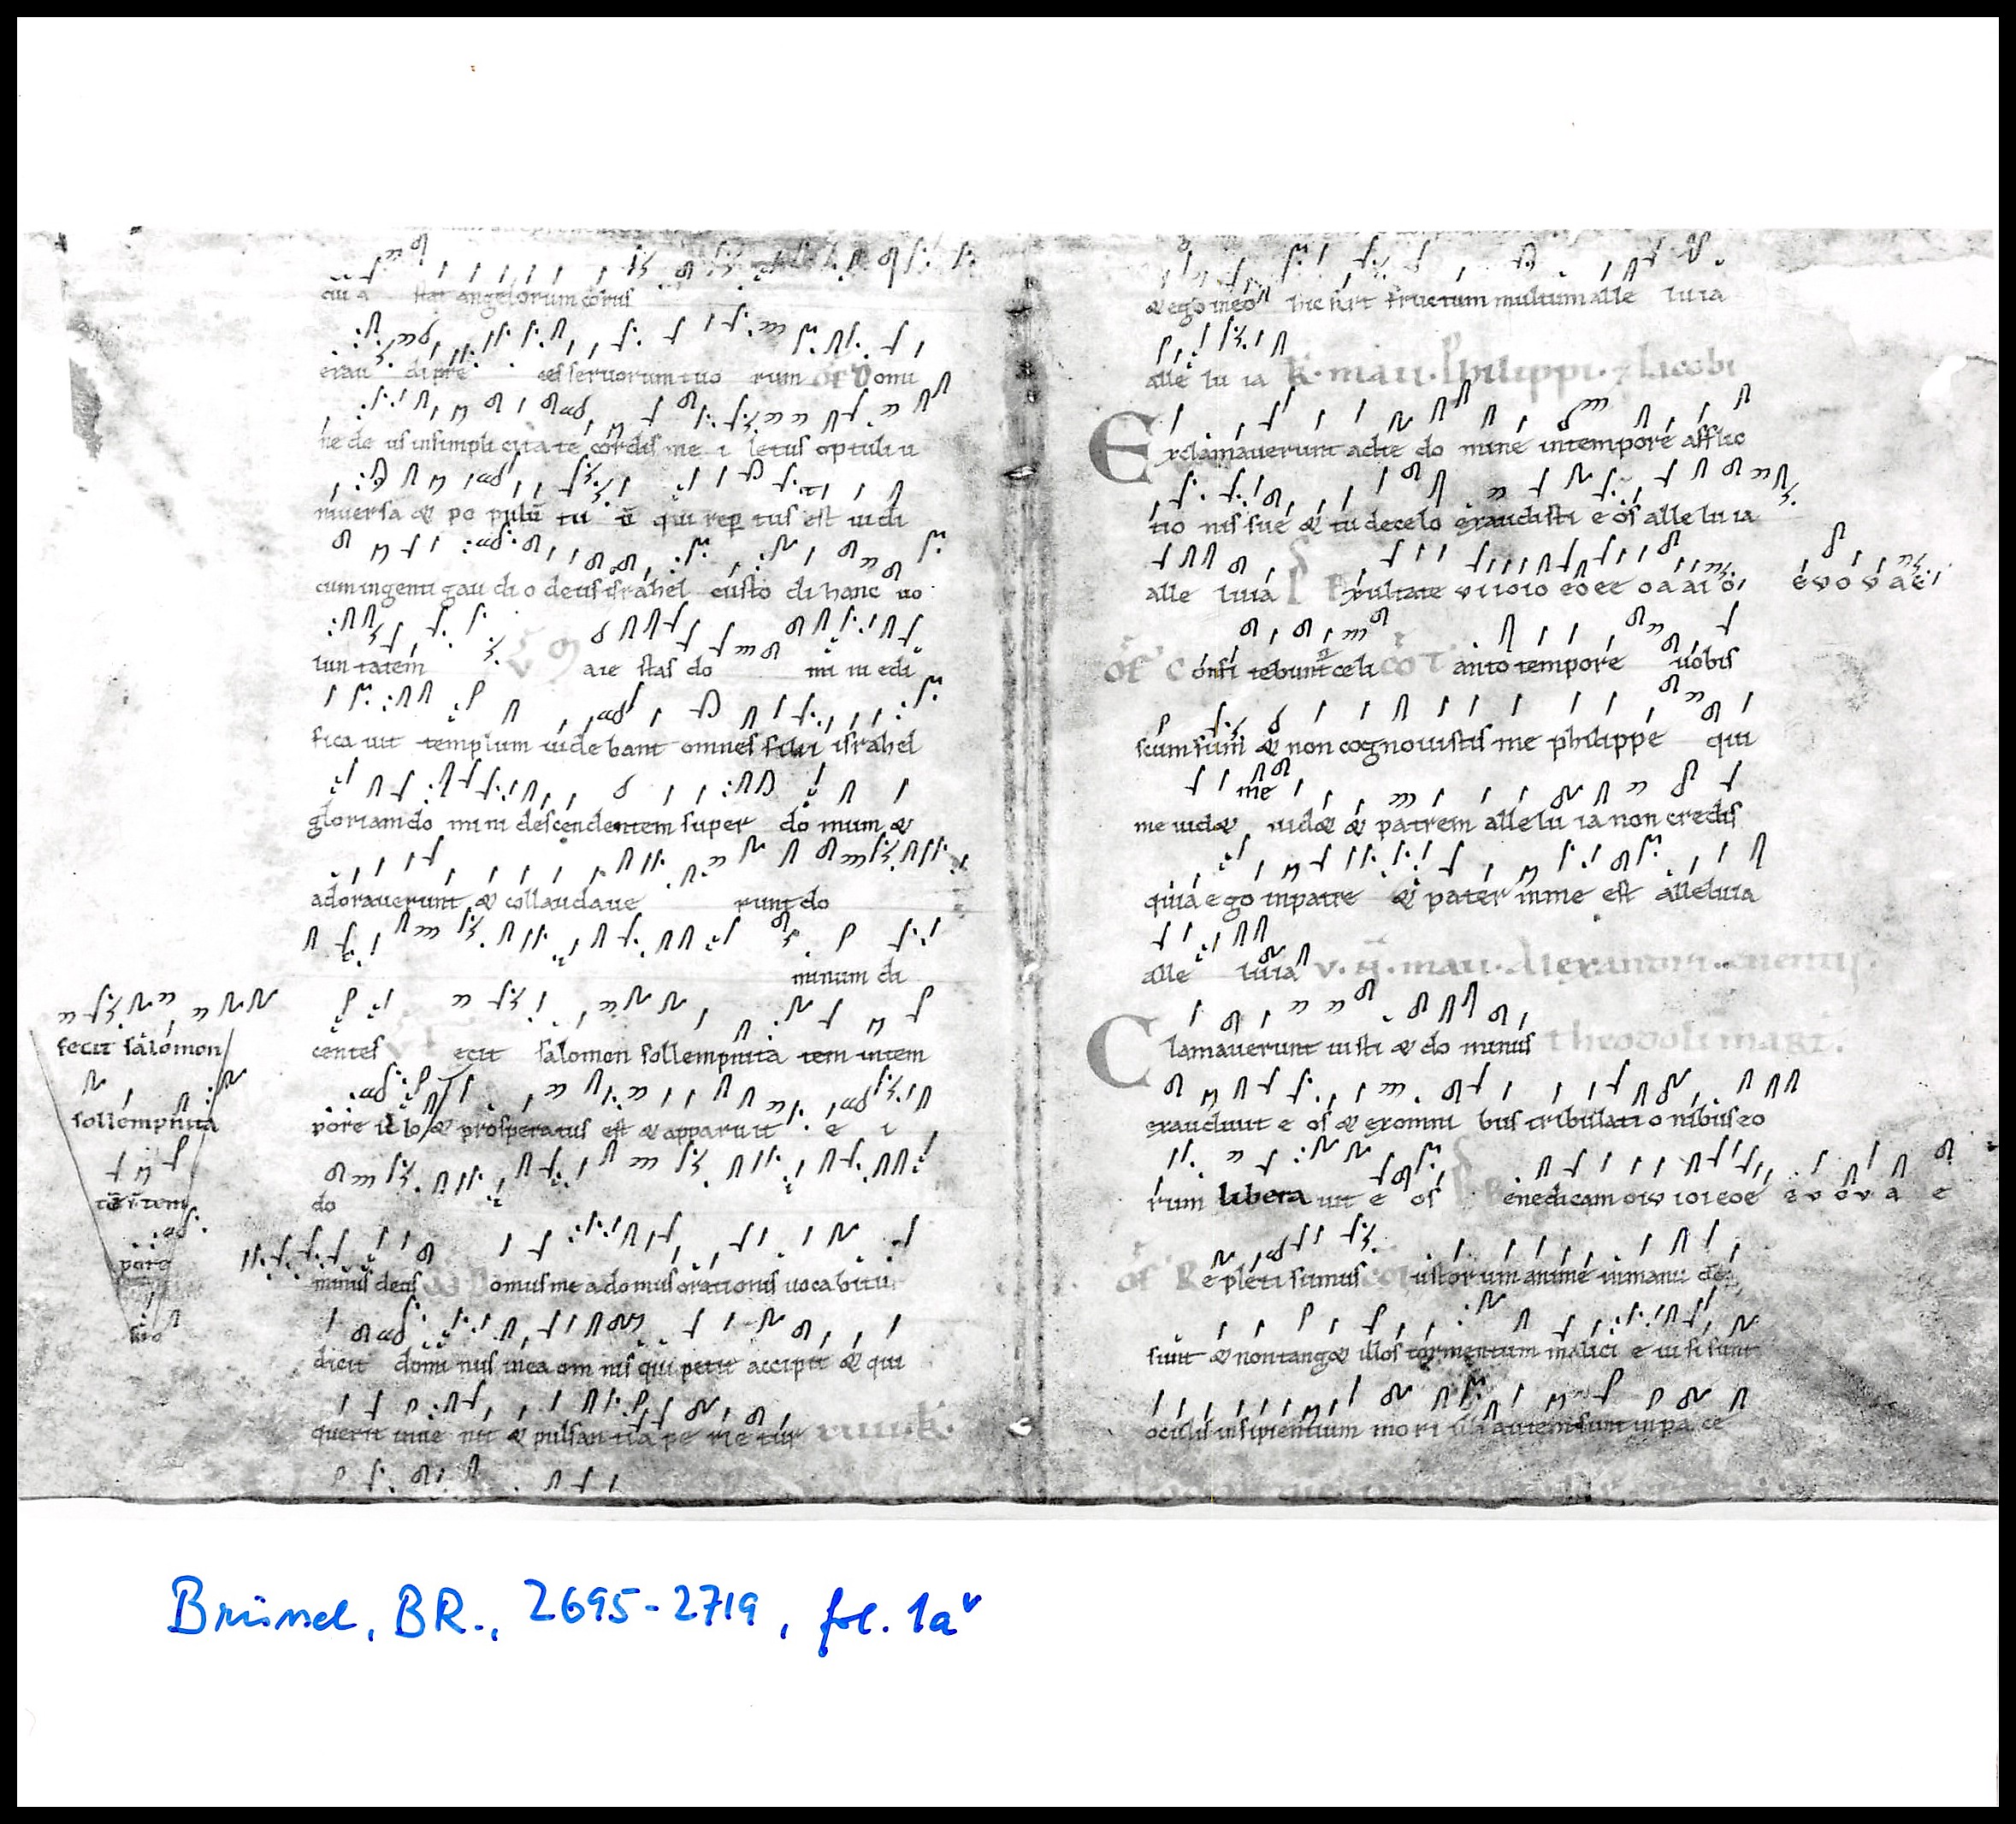 cui a stat angelorum corus
exau di pre ces seruorum tuo rum of Domi
ne de us in simpli cita te cordis me i letus optuli u
niuersa & po pulū tu ū qui rep tus est uidi
cum ingenti gau di o deus israhel custo di hanc uo
lun tatem Maie stas do mi ni edi
fica uit templum uide bant omnes filii israhel
gloriam do mini descendentem super do mum &
adorauerunt & collaudaue runt do
minum di
centes Fecit salomon sollempnita tem in tem
pore illo & prosperatus est & apparuit e i
do
minus deus Domus me a domus orationis uocabitur
dicit domi nus in ea om nis qui petit accipit & qui
querit inue nit & pulsan ti a pe rie tur
fecit salomon
sollempnita
tē in tem
pore
& ego in eo hic fert fructum multum alle lu ia
alle lu ia K. maii. Philippi. & Iacobi
Exclamauerunt ad te do mine in tempore afflic
tio nis sue & tu de celo exaudisti e os alle lu ia
alle luia Exultate
of Confi tebunt celi co Tanto tempore uobis
scum sum & non cognouistis me philippe qui
me uid& me uid& & patrem alle lu ia non credis
quia ego in patre & pater in me est alleluia
alle luia v. N. maii. Alexandri. euentii.
Clamauerunt iusti & do minus theodoli mart.
exaudiuit e os & ex omni bus tribulati o nibus eo
rum libera uit e os Benedicam
of Repleti sumus co Iustorum anime in manu dei
sunt & non tang& illos tormentum malici e uisi sunt
oculis insipientium mori illi autem sunt in pa ce
Brüssel, BR., 2695-2719, fol. 1aᵛ